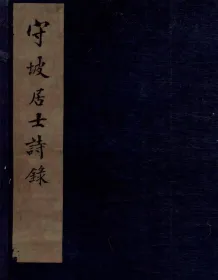 守坡居士詩錄